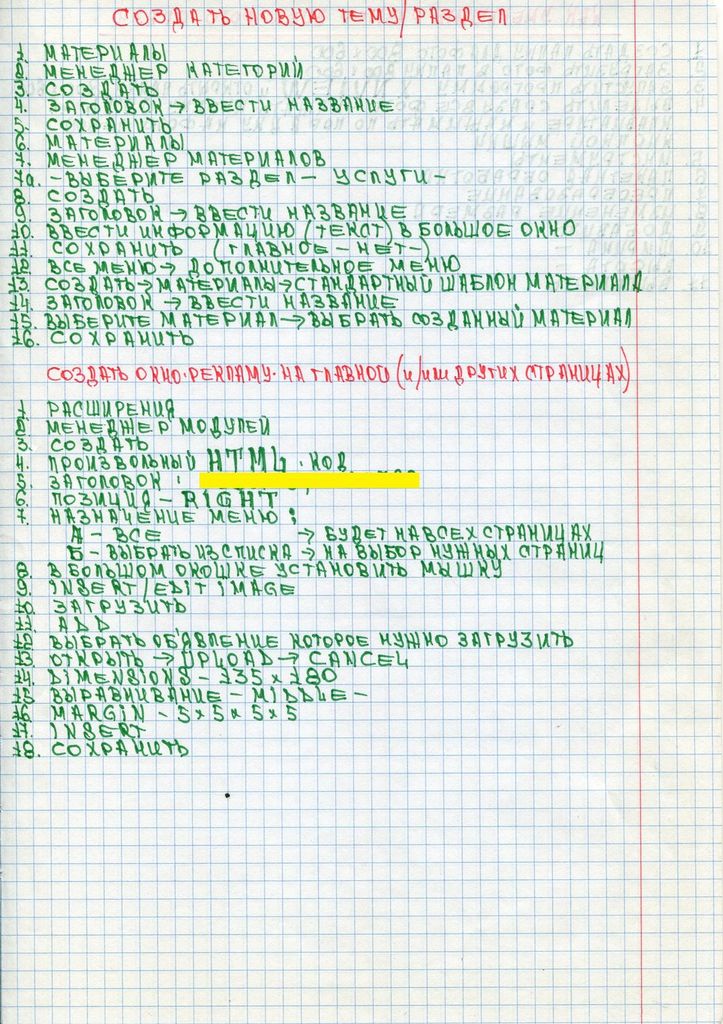 СОЗДАТЬ НОВУЮ ТЕМУ/РАЗДЕЛ
1. МАТЕРИАЛЫ
2. МЕНЕДЖЕР КАТЕГОРИЙ
3. СОЗДАТЬ
4. ЗАГОЛОВОК → ВВЕСТИ НАЗВАНИЕ
5. СОХРАНИТЬ
6. МАТЕРИАЛЫ
7. МЕНЕДЖЕР МАТЕРИАЛОВ
7а. - ВЫБЕРИТЕ РАЗДЕЛ - УСЛУГИ -
8. СОЗДАТЬ
9. ЗАГОЛОВОК → ВВЕСТИ НАЗВАНИЕ
10. ВВЕСТИ ИНФОРМАЦИЮ (ТЕКСТ) В БОЛЬШОЕ ОКНО
11. СОХРАНИТЬ (ГЛАВНОЕ - НЕТ-)
12. ВСЕ МЕНЮ → ДОПОЛНИТЕЛЬНОЕ МЕНЮ
13. СОЗДАТЬ → МАТЕРИАЛЫ → СТАНДАРТНЫЙ ШАБЛОН МАТЕРИАЛА
14. ЗАГОЛОВОК → ВВЕСТИ НАЗВАНИЕ
15. ВЫБЕРИТЕ МАТЕРИАЛ → ВЫБРАТЬ СОЗДАННЫЙ МАТЕРИАЛ
16. СОХРАНИТЬ
СОЗДАТЬ ОКНО-РЕКЛАМУ-НА ГЛАВНОЙ (и/или ДРУГИХ СТРАНИЦАХ)
1. РАСШИРЕНИЯ
2. МЕНЕДЖЕР МОДУЛЕЙ
3. СОЗДАТЬ
4. ПРОИЗВОЛЬНЫЙ HTML - КОД
5. ЗАГОЛОВОК:
6. ПОЗИЦИЯ - RIGHT
7. НАЗНАЧЕНИЕ МЕНЮ:
А - ВСЕ → БУДЕТ НА ВСЕХ СТРАНИЦАХ
Б - ВЫБРАТЬ ИЗ СПИСКА → НА ВЫБОР НУЖНЫХ СТРАНИЦ
8. В БОЛЬШОМ ОКОШКЕ УСТАНОВИТЬ МЫШКУ
9. INSERT/EDIT IMAGE
10. ЗАГРУЗИТЬ
11. ADD
12. ВЫБРАТЬ ОБ'ЯВЛЕНИЕ КОТОРОЕ НУЖНО ЗАГРУЗИТЬ
13. ОТКРЫТЬ → UPLOAD → CANCEL
14. DIMENSIONS - 135 x 180
15. ВЫРАВНИВАНИЕ - MIDDLE -
16. MARGIN - 5 x 5 x 5 x 5
17. INSERT
18. СОХРАНИТЬ